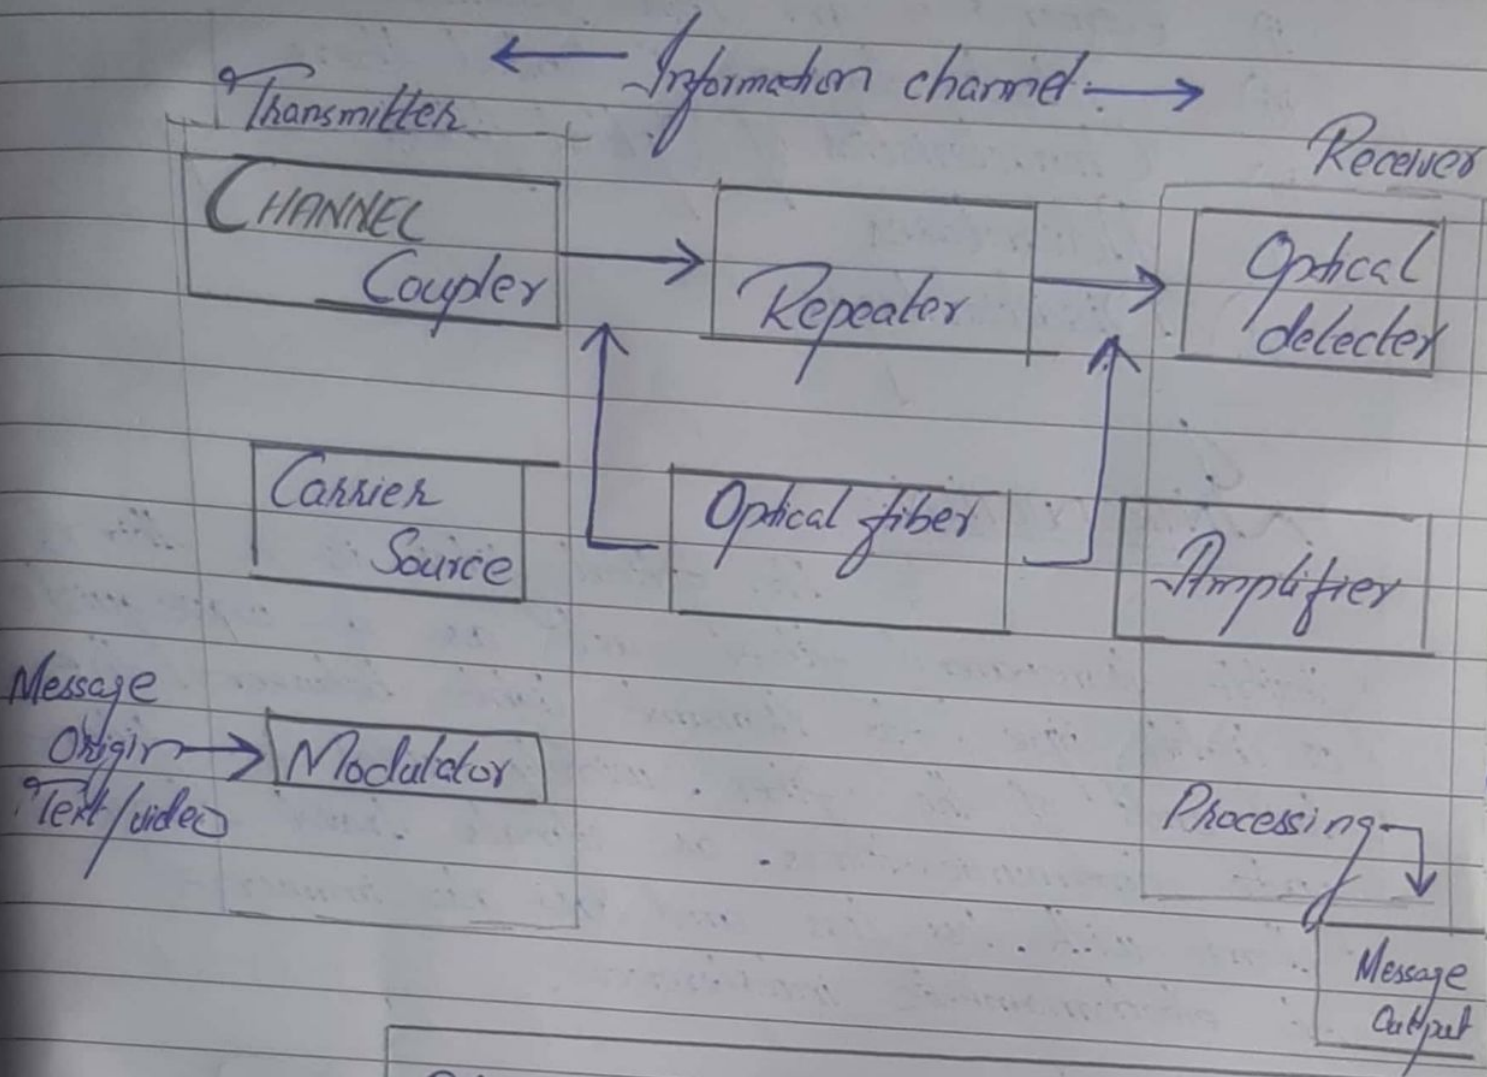 Information channel
Transmitter
Receiver
CHANNEL
Coupler
Repeater
Optical
detecter
Carrier
Source
Optical fiber
Amplifier
Message
Origin
Text/video
Modulator
Processing
Message
Output